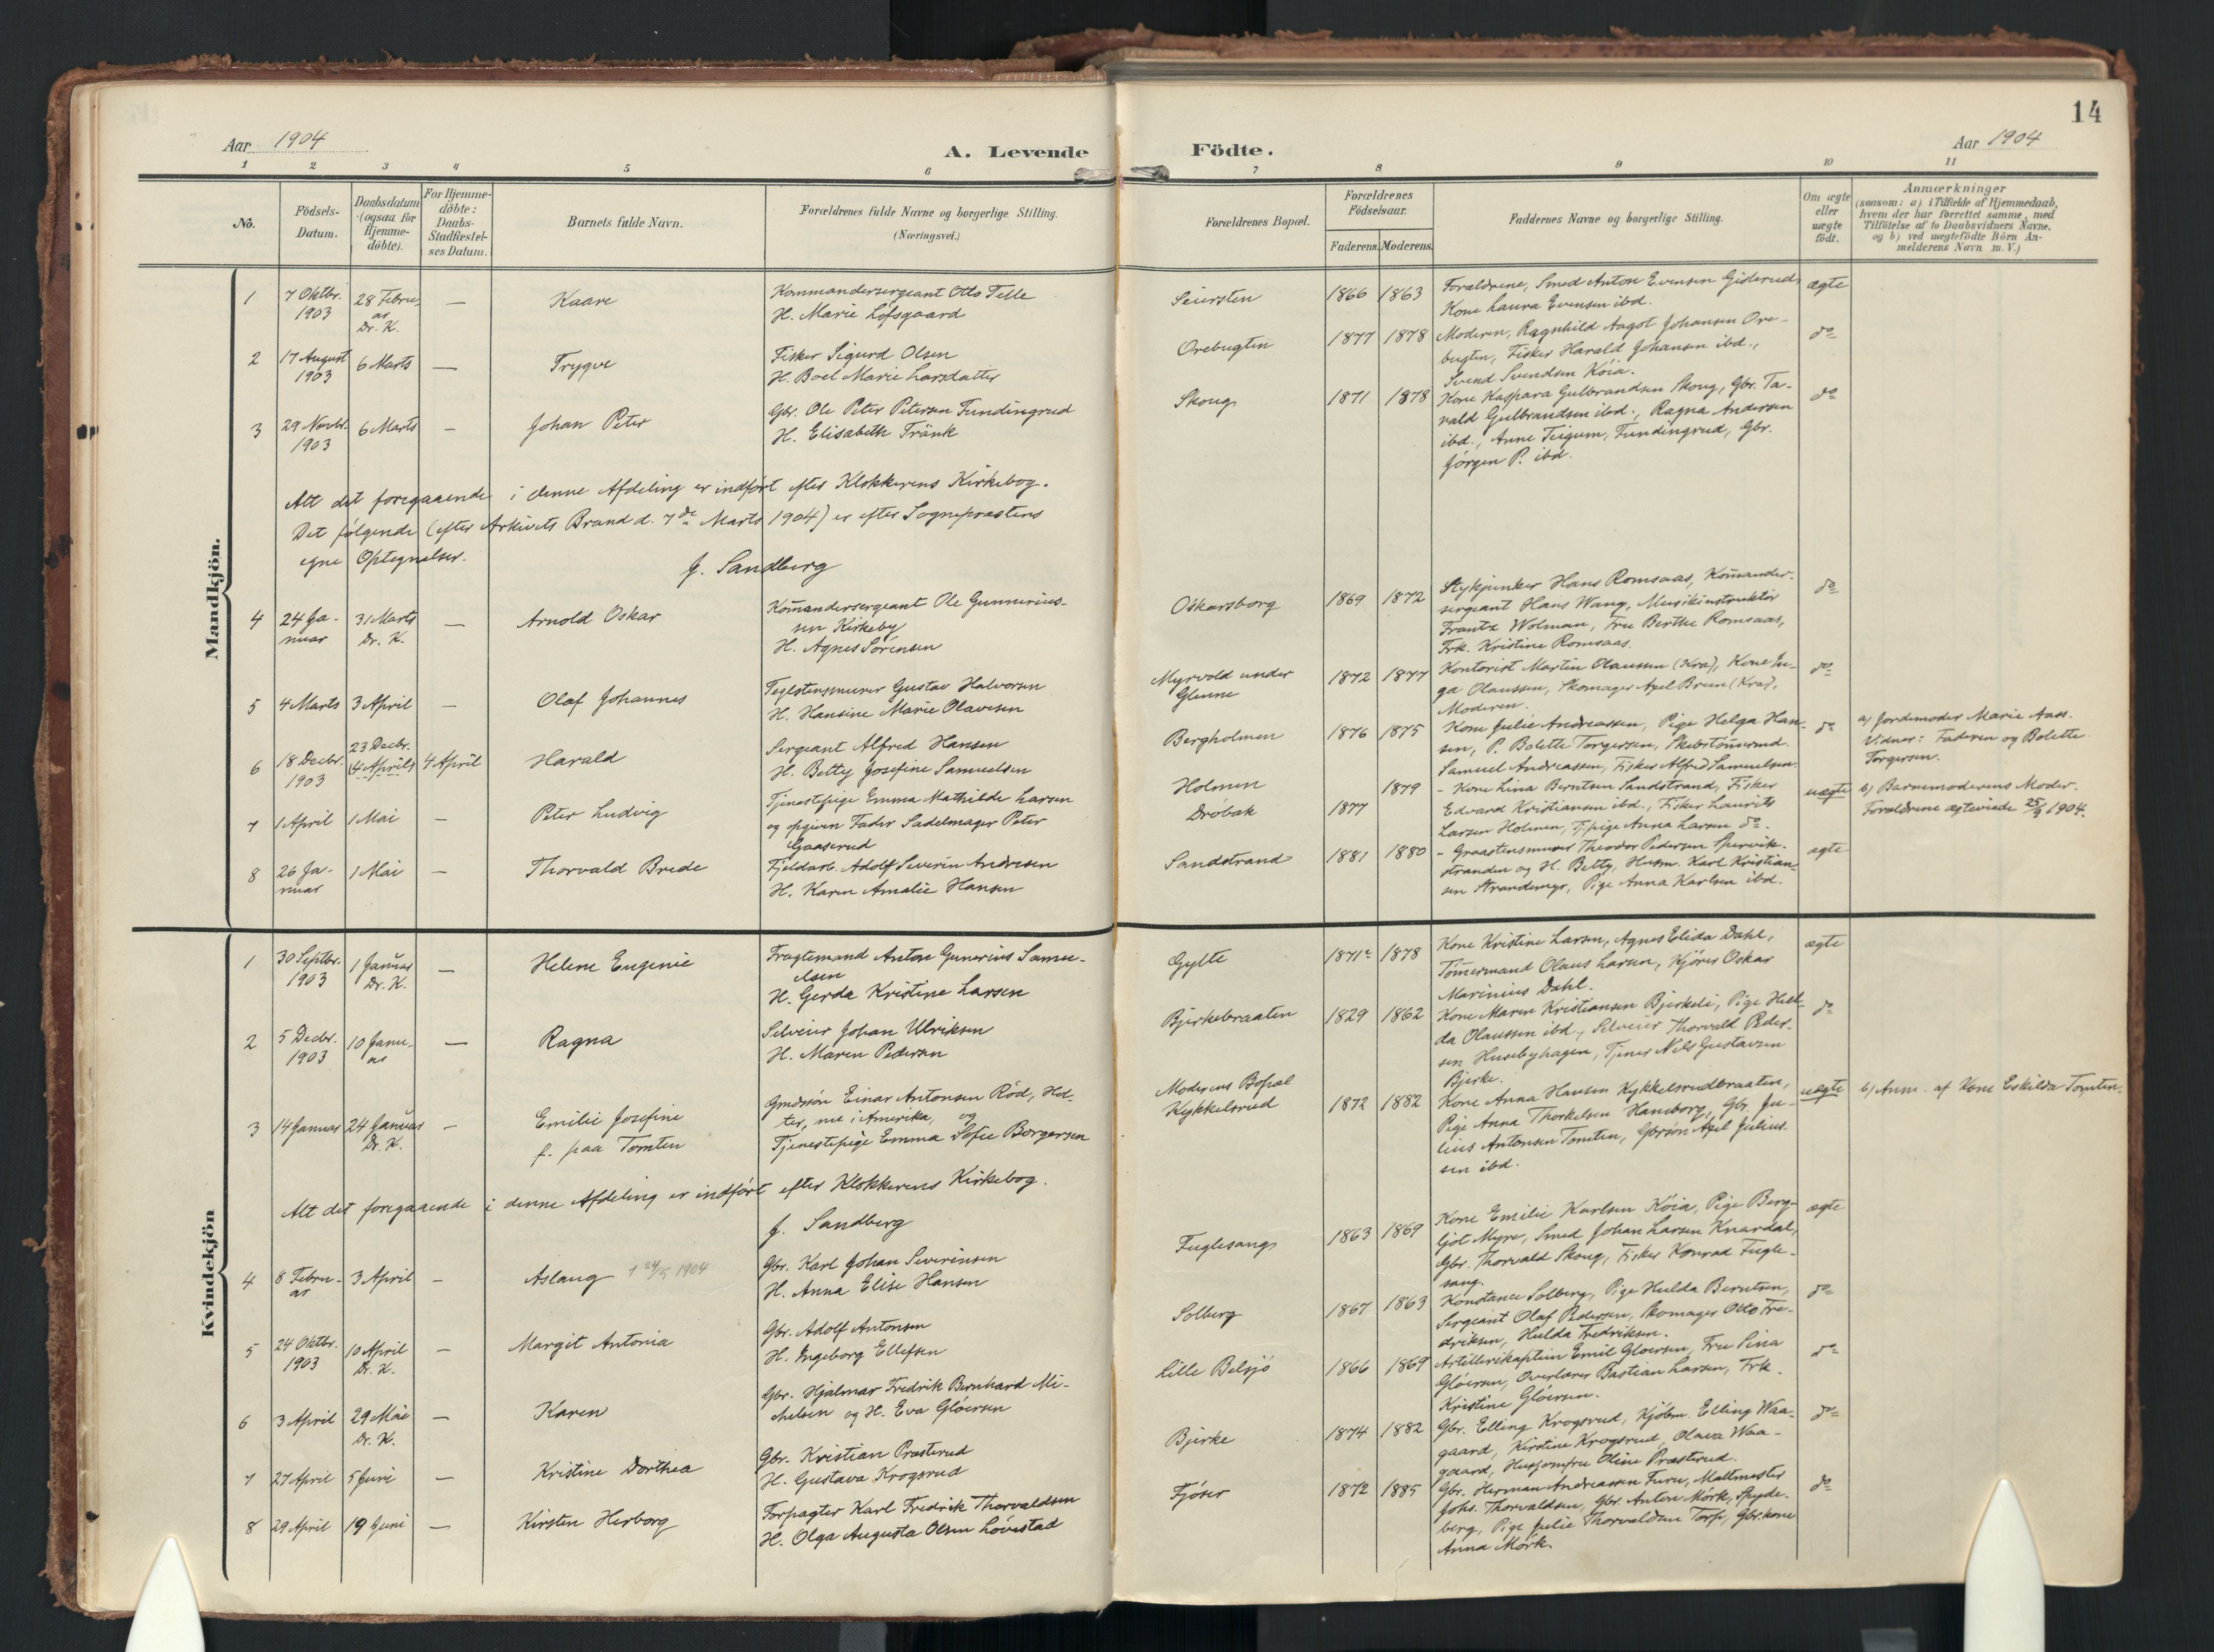 14
Aar 1904
A. Levende Födte.
Aar 1904
1 2 3 4 5 6 7 8 9 10 11
No.
Födsels-Datum.
Daabsdatum (ogsaa for Hjemme-döbte).
For Hjemme-döbte: Daabs-Stadfæstel-ses Datum.
Barnets fulde Navn.
Forældrenes fulde Navne og borgerlige Stilling.
(Næringsvei.)
Forældrenes Bopæl.
Forældrenes Födselsaar.
Faderens. Moderens.
Faddernes Navne og borgerlige Stilling.
Om ægte eller uægte födt.
Anmærkninger
(saasom: a) i Tilfælde af Hjemmedaab,
hvem der har forrettet samme, med
Tilföielse af to Daabsvidners Navne,
og b) ved uægtefödte Börn An-
melderens Navn m. V.)
Mandkjön.
1
7 Oktbr. 1903
28 Febru-ar Dr. K.
—
Kaare
Kommandersergeant Otto Telle
H. Marie Lofsgaard
Seiersten
1866 1863
Forældrene, Smed Anton Evensen Gislerud,
Kone Laura Evensen ibd.
ægte
2
17 August 1903
6 Marts
—
Trygve
Fisker Sigurd Olsen
H. Boel Marie Larsdatter
Orebugten
1877 1878
Moderen, Ragnhild Aagot Johansen Ore-
bugten, Fisker Harald Johansen ibd.,
Svend Svendsen Köia.
do
3
29 Novbr. 1903
6 Marts
—
Johan Peter
Gbr. Ole Peter Petersen Fundingrud
H. Elisabeth Tränk
Skoug
1871 1878
Kone Kaspara Gulbrandsen Skoug, Gbr. Ta-
vald Gulbrandsen ibd., Ragna Andersen
ibd., Anne Teigum, Fundingrud, Gbr.
Jörgen P. ibd.
do
Alt det foregaaende i denne Afdeling er indfört efter Klokkerens Kirkebog.
Det følgende (efter Arkivets Brand d. 7de Marts 1904) er efter Sogneprestens
egne Optegnelser.
J. Sandberg
4
24 Ja-nuar
31 Marts Dr. K.
—
Arnold Oskar
Komandersergeant Ole Gunnerius-
sen Kirkeby
H. Agnes Sörensen
Oskarsborg
1869 1872
Stykjunker Hans Romsaas, Komander-
sergeant Hans Wang, Musikinstruktör
Frantz Wolman, Fru Berthe Romsaas,
Frk. Kristine Romsaas.
do
5
4 Marts
3 April
—
Olaf Johannes
Teglstensmurer Gustav Halvorsen
H. Hansine Marie Olavesen
Myrvold under
Glenne
1872 1877
Kontorist Martin Olaussen (Kra), Kone In-
ga Olaussen, Skomager Axel Bruun (Kra),
Moderen.
do
6
18 Decbr. 1903
23 Decbr. (4 April)
4 April
Harald
Sergeant Alfred Hansen
H. Betty Josefine Samuelsen
Bergholmen
1876 1875
Kone Julie Andreassen, Pige Helga Han-
sen, P. Bolette Torgersen, Skibstömermd.
Samuel Andreassen, Fisker Alfred Samuelsen.
do
a) Jordemoder Marie Aass.
Vidner: Faderen og Bolette
Torgersen.
7
1 April
1 Mai
—
Peter Ludvig
Tjenestepige Emma Mathilde Larsen
og opgiven Fader Sadelmager Peter
Gaaserud
Holmen
Dröbak
1877 1879
- Kone Lina Berntsen Sandstrand, Fisker
Edvard Kristiansen ibd., Fisker Laurits
Larsen Holmen, Tj.pige Anna Larsen do.
uægte
b) Barnemoderens Moder.
Forældrene ægteviede 25/9 1904.
8
26 Ja-nuar
1 Mai
—
Thorvald Brede
Fjeldarb. Adolf Severin Andresen
H. Karen Amalie Hansen
Sandstrand
1881 1880
- Graastensmurer Theodor Pedersen Spervik-
stranden og H. Betty, Husm. Karl Kristian-
sen Strandengr, Pige Anna Karlsen ibd.
ægte
Kvindekjön
1
30 Septbr. 1903
1 Januar Dr. K.
—
Helene Eugenie
Fragtemand Anton Gunerius Samu-
elsen
H. Gerda Kristine Larsen
Gylte
1871 1878
Kone Kristine Larsen, Agnes Elida Dahl,
Tömermand Olaus Larsen, Kjörer Oskar
Marinius Dahl.
ægte
2
5 Decbr. 1903
10 Janu-ar
—
Ragna
Selveier Johan Ulriksen
H. Maren Pedersen
Bjerkebraaten
1829 1862
Kone Maren Kristiansen Bjerkeli, Pige Hul-
da Olaussen ibd., Selveier Thorvald Peder-
sen Husebyhagen, Tjener Nils Gustavsen
Bjerke.
do
3
14 Januar
24 Januar Dr. K.
—
Emilie Josefine
f. paa Tomten
Gmdssön Einar Antonsen Röd, Hol-
ter, nu i Amerika, og
Tjenestepige Emma Sofie Borgersen
Moderens Bopæl
Kykkelsrud
1872 1882
Kone Anna Hansen Kykkelsrudbraaten,
Pige Anna Thorkelsen Hamborg, Gbr. Ju-
lius Antonsen Tomten, Gbrsön Axel Julius-
sen ibd.
uægte
b) Anm. af Kone Eskilda Tomten.
Alt det foregaaende i denne Afdeling er indfört efter Klokkerens Kirkebog.
J. Sandberg
4
8 Febru-ar
3 April
—
Aslaug † 24/5 1904
Gbr. Karl Johan Severinsen
H. Anna Elise Hansen
Fuglesang
1863 1869
Kone Emilie Karlsen Köia, Pige Berg-
ljot Myre, Smed Johan Larsen Knardal,
Gbr. Thorvald Skoug, Fisker Konrad Fugle-
sang.
ægte
5
24 Oktbr. 1903
10 April Dr. K.
—
Margit Antonia
Gbr. Adolf Antonsen
H. Ingeborg Ellefsen
Solberg
1867 1863
Konstance Solberg, Pige Hulda Berntsen,
Sergeant Olaf Pedersen, Skomager Otto Fre-
driksen, Hulda Fredriksen.
do
6
3 April
29 Mai Dr. K.
—
Karen
Gbr. Hjalmar Fredrik Bernhard Mi-
chelsen og H. Eva Glöersen
Lille Belsjö
1866 1869
Artillerikaptein Emil Gloersen, Fru Sina
Glöersen, Overlærer Bastian Larsen, Frk.
Kristine Glöersen.
do
7
27 April
5 Juni
—
Kristine Dorthea
Gbr. Kristian Præsterud
H. Gustava Krogsrud
Bjerke
1874 1882
Gbr. Elling Krogsrud, Kjöbm. Elling Waa-
gaard, Kirstine Krogsrud, Olava Waa-
gaard, Husjomfru Oline Præsterud.
do
8
29 April
19 Juni
—
Kirsten Herborg
Forpagter Karl Fredrik Thorvaldsen
H. Olga Augusta Olsen Lövestad
Fjöser
1872 1885
Gbr. Herman Andreassen Furu, Maltmester
Johs. Thorvaldsen, Gbr. Anton Mörk, Spyde-
berg, Pige Julie Thorvaldsen Torp, Gbr.kone
Anna Mörk.
do